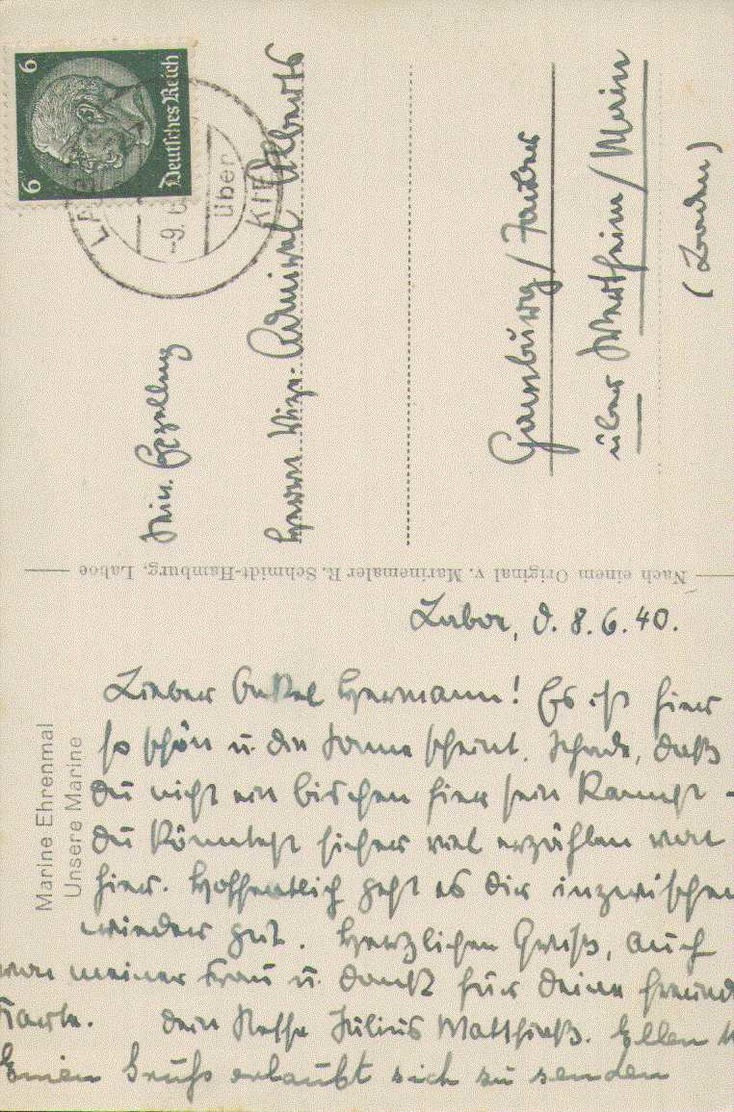 6 6
Deutsches Reich
über
KIEL
Herrn Vize-Admiral Alberts
Gamburg/Tauber
über Wertheim/Main
(Baden)
Nach einem Original v. Marinemaler R. Schmidt-Hamburg, Laboe
Marine Ehrenmal
Unsere Marine
Laboe, d. 8.6.40.
Lieber Onkel Hermann! Es ist hier
so schön u. die Sonne scheint. Schade, daß
du nicht ein bischen hier sein kannst -
du könntest sicher viel erzählen von
hier. Hoffentlich geht es dir inzwischen
wieder gut. Herzlichen Gruß, auch
von meiner Frau u. dank für deine
Karte. Dein Neffe Julius Matthieß. Ellen
Einen Gruß erlaubt sich zu senden